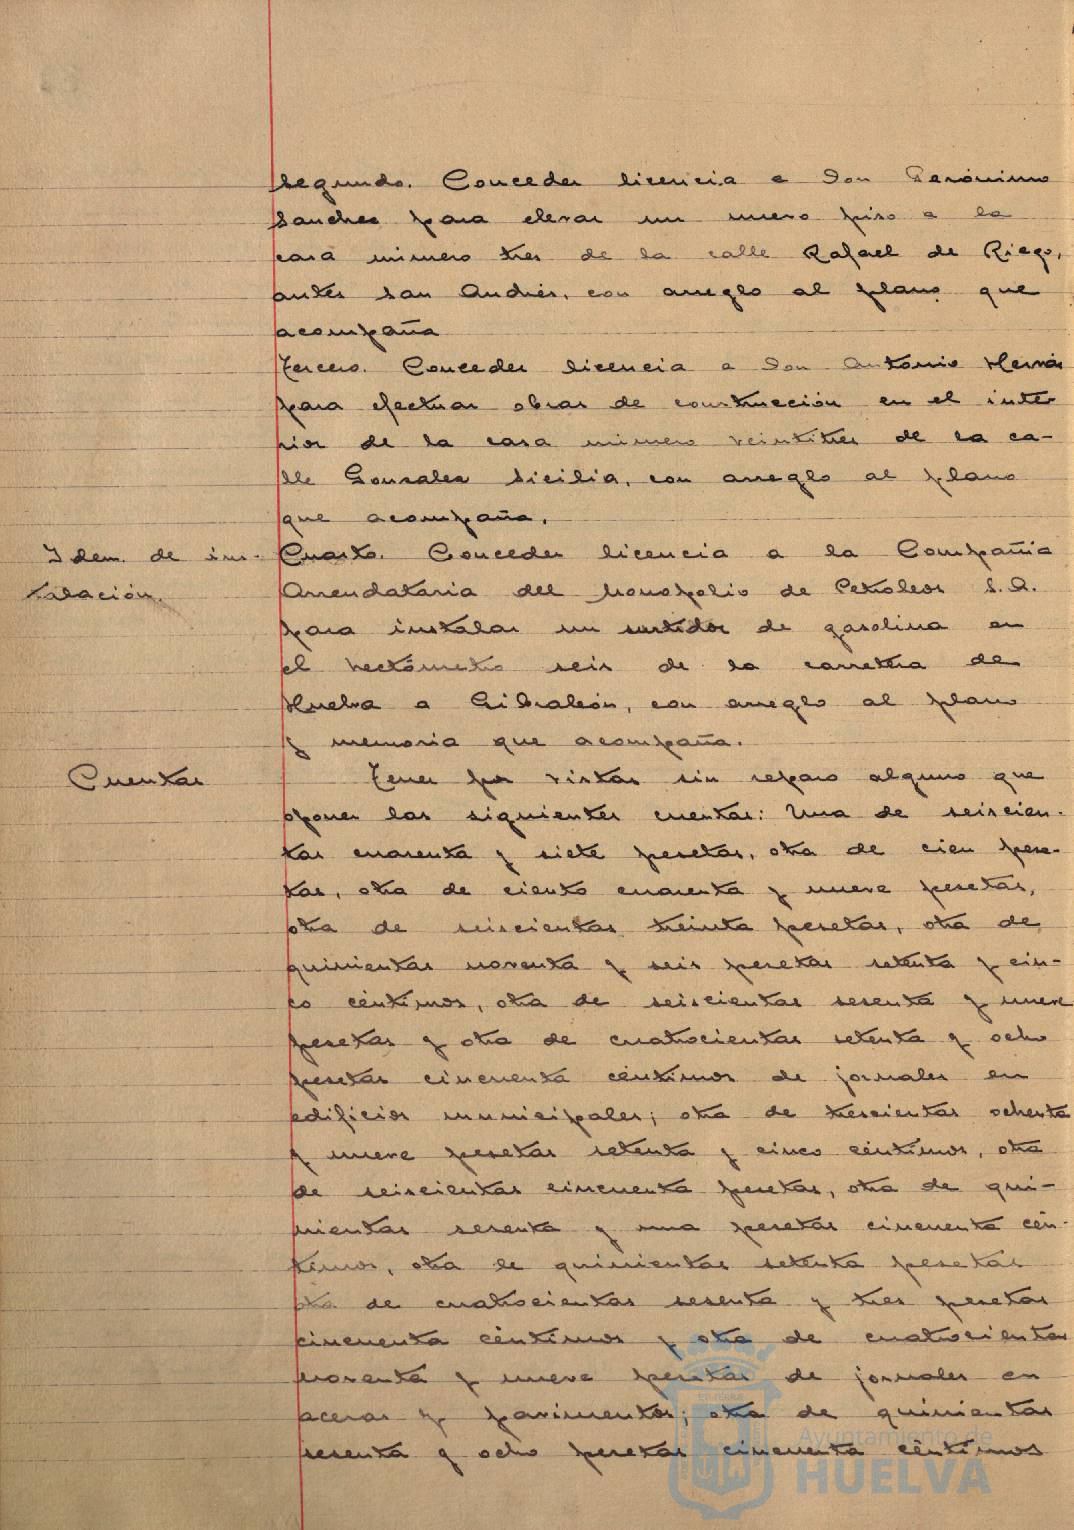 Segundo. Conceder licencia a Don Gerónimo
Sanchez para elevar un nuevo piso a la
casa número tres de la calle Rafael de Riego,
antes San Andrés, con arreglo al plano que
acompaña
Tercero. Conceder licencia a Don Antonio
para efectuar obras de construcción en el inte-
rior de la casa número veintitres de la ca-
lle Gonzalez Sicilia, con arreglo al plano
que acompaña.
Idem. de ins-
talación.
Cuarto. Conceder licencia a la Compañia
Arrendataria del Monopolio de Petroleos S.A.
para instalar un surtidor de gasolina en
el hectómetro seis de la carretera de
Huelva a Gibraleón, con arreglo al plano
y memoria que acompaña.
Cuentas
Tener por vistas sin reparo alguno que
oponer las siguientes cuentas: Una de seiscien-
tas cuarenta y siete pesetas, otra de cien pese-
tas, otra de ciento cuarenta y nueve pesetas,
otra de seiscientas treinta pesetas, otra de
quinientas noventa y seis pesetas setenta y cin-
co céntimos, otra de seiscientas sesenta y nueve
pesetas y otra de cuatrocientas setenta y ocho
pesetas cincuenta céntimos de jornales en
edificios municipales; otra de trescientas ochenta
y nueve pesetas setenta y cinco céntimos, otra
de seiscientas cincuenta pesetas, otra de qui-
nientas sesenta y una pesetas cincuenta cén-
timos, otra de quinientas setenta pesetas
otra de cuatrocientas sesenta y tres pesetas
cincuenta céntimos y otra de cuatrocientas
noventa y nueve pesetas de jornales en
aceras y pavimentos; otra de quinientas
sesenta y ocho pesetas cincuenta céntimos
Ayuntamiento de
HUELVA